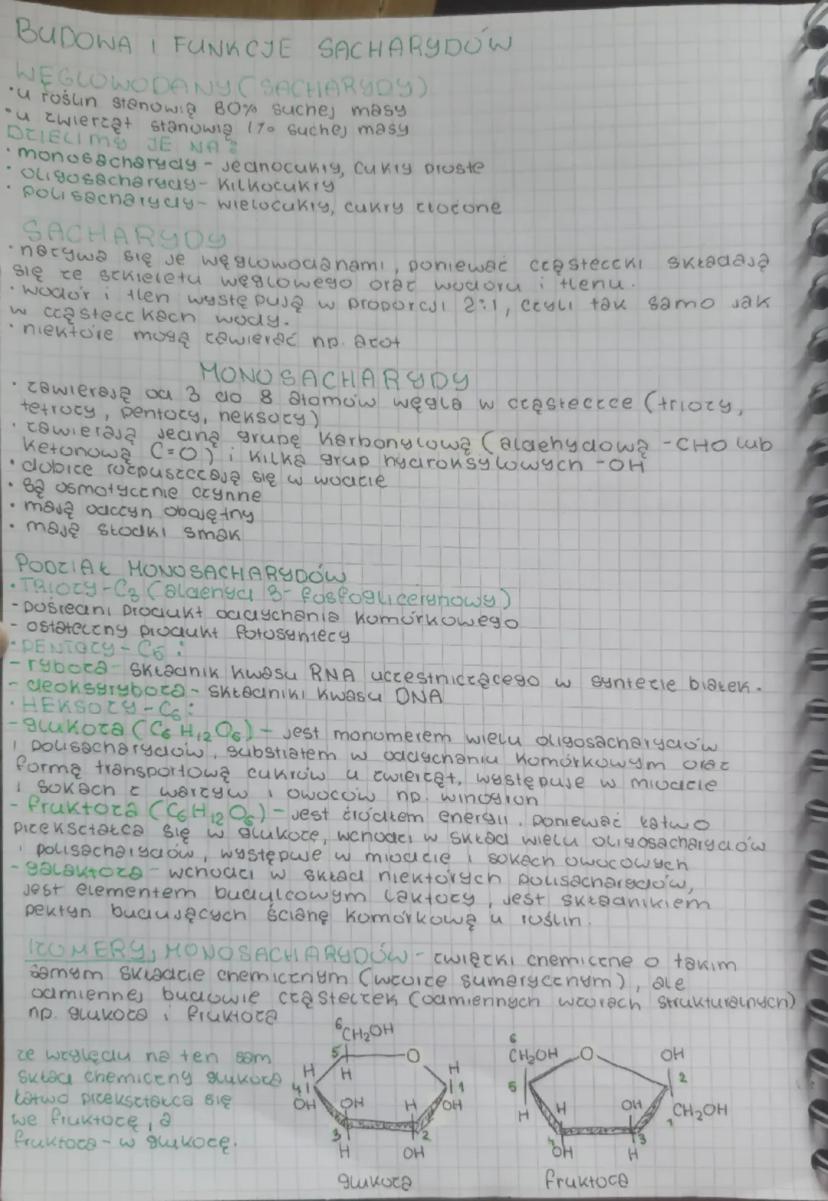 BUDOWA I FUNKCJE SACHARYDÓW
WĘGLOWODANY (SACHARYDY)
• u roślin stanowią 80% suchej masy
• u zwierząt stanowią 1% suchej masy
DZIELIMY JE NA:
• monosacharydy - jednocukry, cukry proste
• oligosacharydy - kilkocukry
• polisacharydy - wielocukry, cukry złożone
SACHARYDY
• nazywa się je węglowodanami, ponieważ cząsteczki składają
się ze szkieletu węglowego oraz wodoru i tlenu.
• wodór i tlen występują w proporcji 2:1, czyli tak samo jak
w cząsteczkach wody.
• niektóre mogą zawierać np. azot
MONOSACHARYDY
• zawierają od 3 do 8 atomów węgla w cząsteczce (triozy,
tetrozy, pentozy, heksozy)
• zawierają jedną grupę karbonylową (aldehydową -CHO lub
ketonową C=O) i kilka grup hydroksylowych -OH
• dobrze rozpuszczają się w wodzie
• są osmotycznie czynne
• mają odczyn obojętny
• mają słodki smak
PODZIAŁ MONOSACHARYDÓW
• TRIOZY - C3 (aldehyd 3-fosfoglicerynowy)
- pośredni produkt oddychania komórkowego
- ostateczny produkt fotosyntezy
• PENTOZY - C5:
- ryboza - składnik kwasu RNA uczestniczącego w syntezie białek.
- deoksyryboza - składnik kwasu DNA
• HEKSOZY - C6:
- glukoza (C6H12O6) - jest monomerem wielu oligosacharydów
i polisacharydów, substratem w oddychaniu komórkowym oraz
formą transportową cukrów u zwierząt, występuje w miodzie
i sokach z warzyw i owoców np. winogron
- fruktoza (C6H12O6) - jest źródłem energii, ponieważ łatwo
przekształca się w glukozę, wchodzi w skład wielu oligosacharydów
i polisacharydów, występuje w miodzie i sokach owocowych
- galaktoza - wchodzi w skład niektórych polisacharydów,
jest elementem budulcowym laktozy, jest składnikiem
pektyn budujących ścianę komórkową u roślin.
IZOMERY MONOSACHARYDÓW - związki chemiczne o takim
samym składzie chemicznym (wzorze sumarycznym), ale
odmiennej budowie cząsteczek (odmiennych wzorach strukturalnych)
np. glukoza i fruktoza
ze względu na ten sam
skład chemiczny glukoza
łatwo przekształca się
we fruktozę, a
fruktoza - w glukozę.
6 CH2OH
5 O
H H H
4 1
OH OH H OH
3 2
H OH
glukoza
6
CH2OH O OH
5 2
H H OH CH2OH
1
4 3
OH H
fruktoza